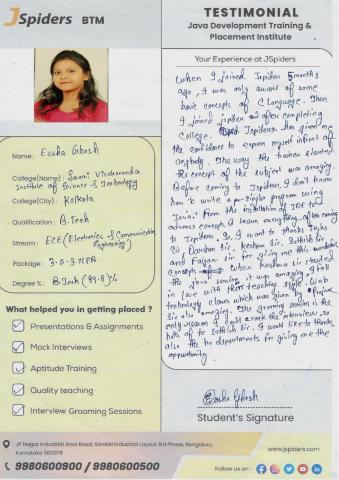 JSpiders BTM
TESTIMONIAL
Java Development Training &
Placement Institute
Your Experience at JSpiders
When I joined Jspiders 5 months
ago, I was only aware of some
basic concepts of C Language. Then
I joined jspiders after completing
College. Jspiders has given me
the confidence to express myself infront of
anybody. The way the trainer
the concepts of the subject was amazing.
Before coming to Jspiders, I don't know
how to write a single program using
Java. From the installation of IDE to
advance concepts I learn everything after coming
to Jspiders. So, I want to thanks
Sir, Keshav Sir, Sathish Sir
and Sir for giving me this
concepts. When Keshav Sir
the java session it was amazing I fell
in love with their teaching style. Web
technology classes which was given by
Sir also amazing. The grooming session is the
only reason I could crack the interview, so
hats off to Sathish Sir. I would like to thanks
also the hr departments for giving me the
opportunity.
Name: Eesha Ghosh
College(Name): Swami Vivekananda
Institute of Science & Technology
College(City): Kolkata
Qualification: B.Tech
Stream: ECE (Electronics & Communication
Engineering)
Package: 3.0-3.75 LPA
Degree %: B.Tech (79.8)%
What helped you in getting placed ?
Presentations & Assignments
Mock Interviews
Aptitude Training
Quality teaching
Interview Grooming Sessions
Eesha Ghosh
Student's Signature
JP Nagar Industrial Area Road, Sarakki Industrial Layout 3rd Phase, Bengaluru,
Karnataka 560078
9980600900 / 9980600500
www.jspiders.com
Follow us on: